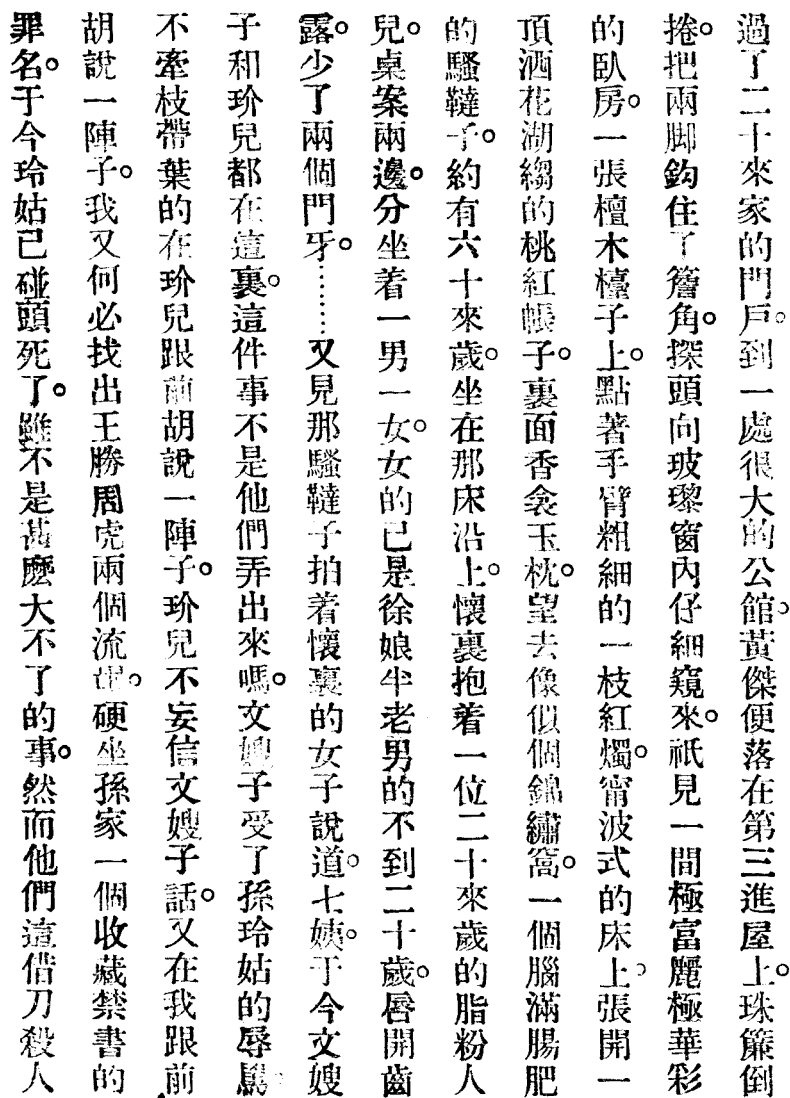 過了二十來家的門戶。到一處很大的公館。黃傑便落在第三進屋上。珠簾倒
捲。把兩脚鈎住了簷角。探頭向玻瓈窗內仔細窺來。祇見一間極富麗極華彩
的臥房。一張檀木檯子上。點著手臂粗細的一枝紅燭。甯波式的床上。張開一
頂洒花湖縐的桃紅帳子。裏面香衾玉枕。望去像似個錦繡窩。一個腦滿腸肥
的騷韃子。約有六十來歲。坐在那床沿上。懷裏抱着一位二十來歲的脂粉人
兒。桌案兩邊。分坐着一男一女。女的已是徐娘半老。男的不到二十歲。唇開齒
露。少了兩個門牙。……又見那騷韃子拍着懷裏的女子說道。七姨。于今文嫂
子和玠兒都在這裏。這件事不是他們弄出來嗎。文嫂子受了孫玲姑的辱駡。
不牽枝帶葉的在玠兒跟前胡說一陣子。玠兒不妄信文嫂子話。又在我跟前
胡說一陣子。我又何必找出王勝周虎兩個流氓。硬坐孫家一個收藏禁書的
罪名。于今玲姑已碰頭死了。雖不是甚麽大不了的事。然而他們這借刀殺人